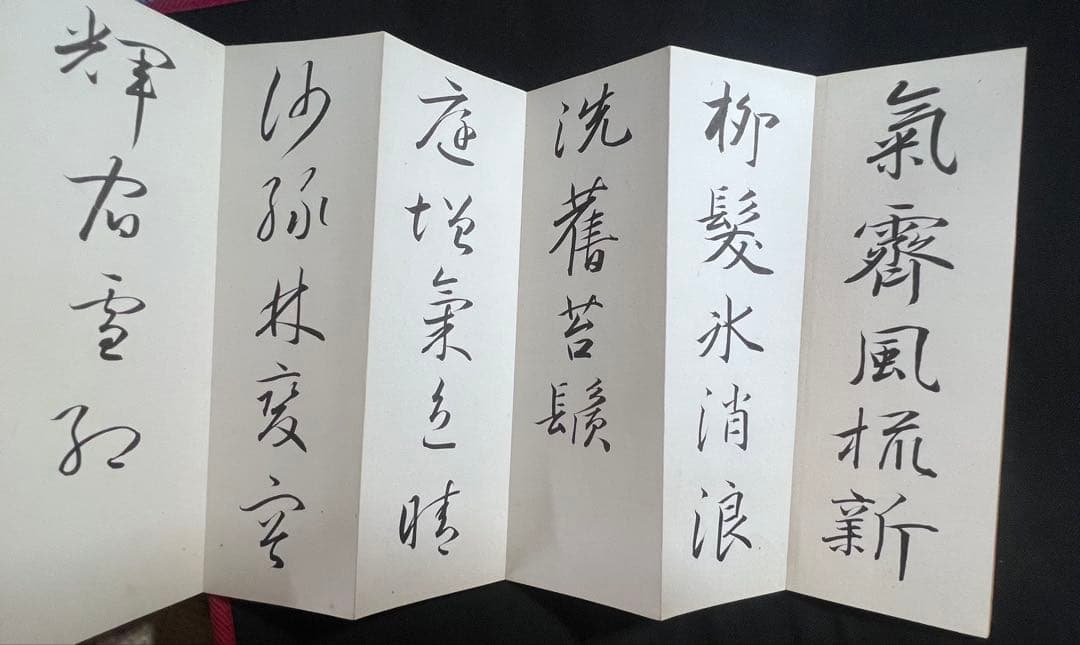 氣霽風梳新
柳髮氷消浪
洗舊苔鬚
庭增氣色晴
沙綠林變容
輝宿雪紅